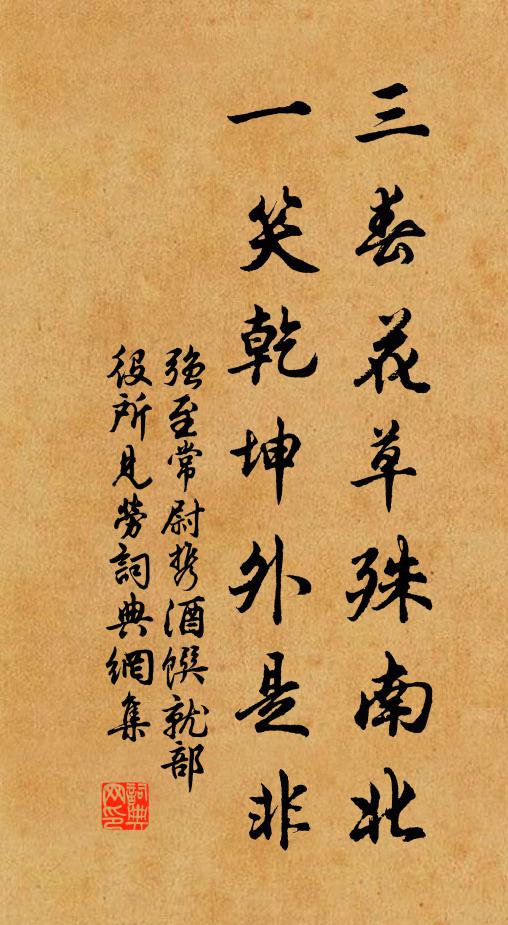 三春花草殊南北
一笑乾坤外是非
強至常尉携酒饌就部
役所見勞詞典網集
詞典
网印